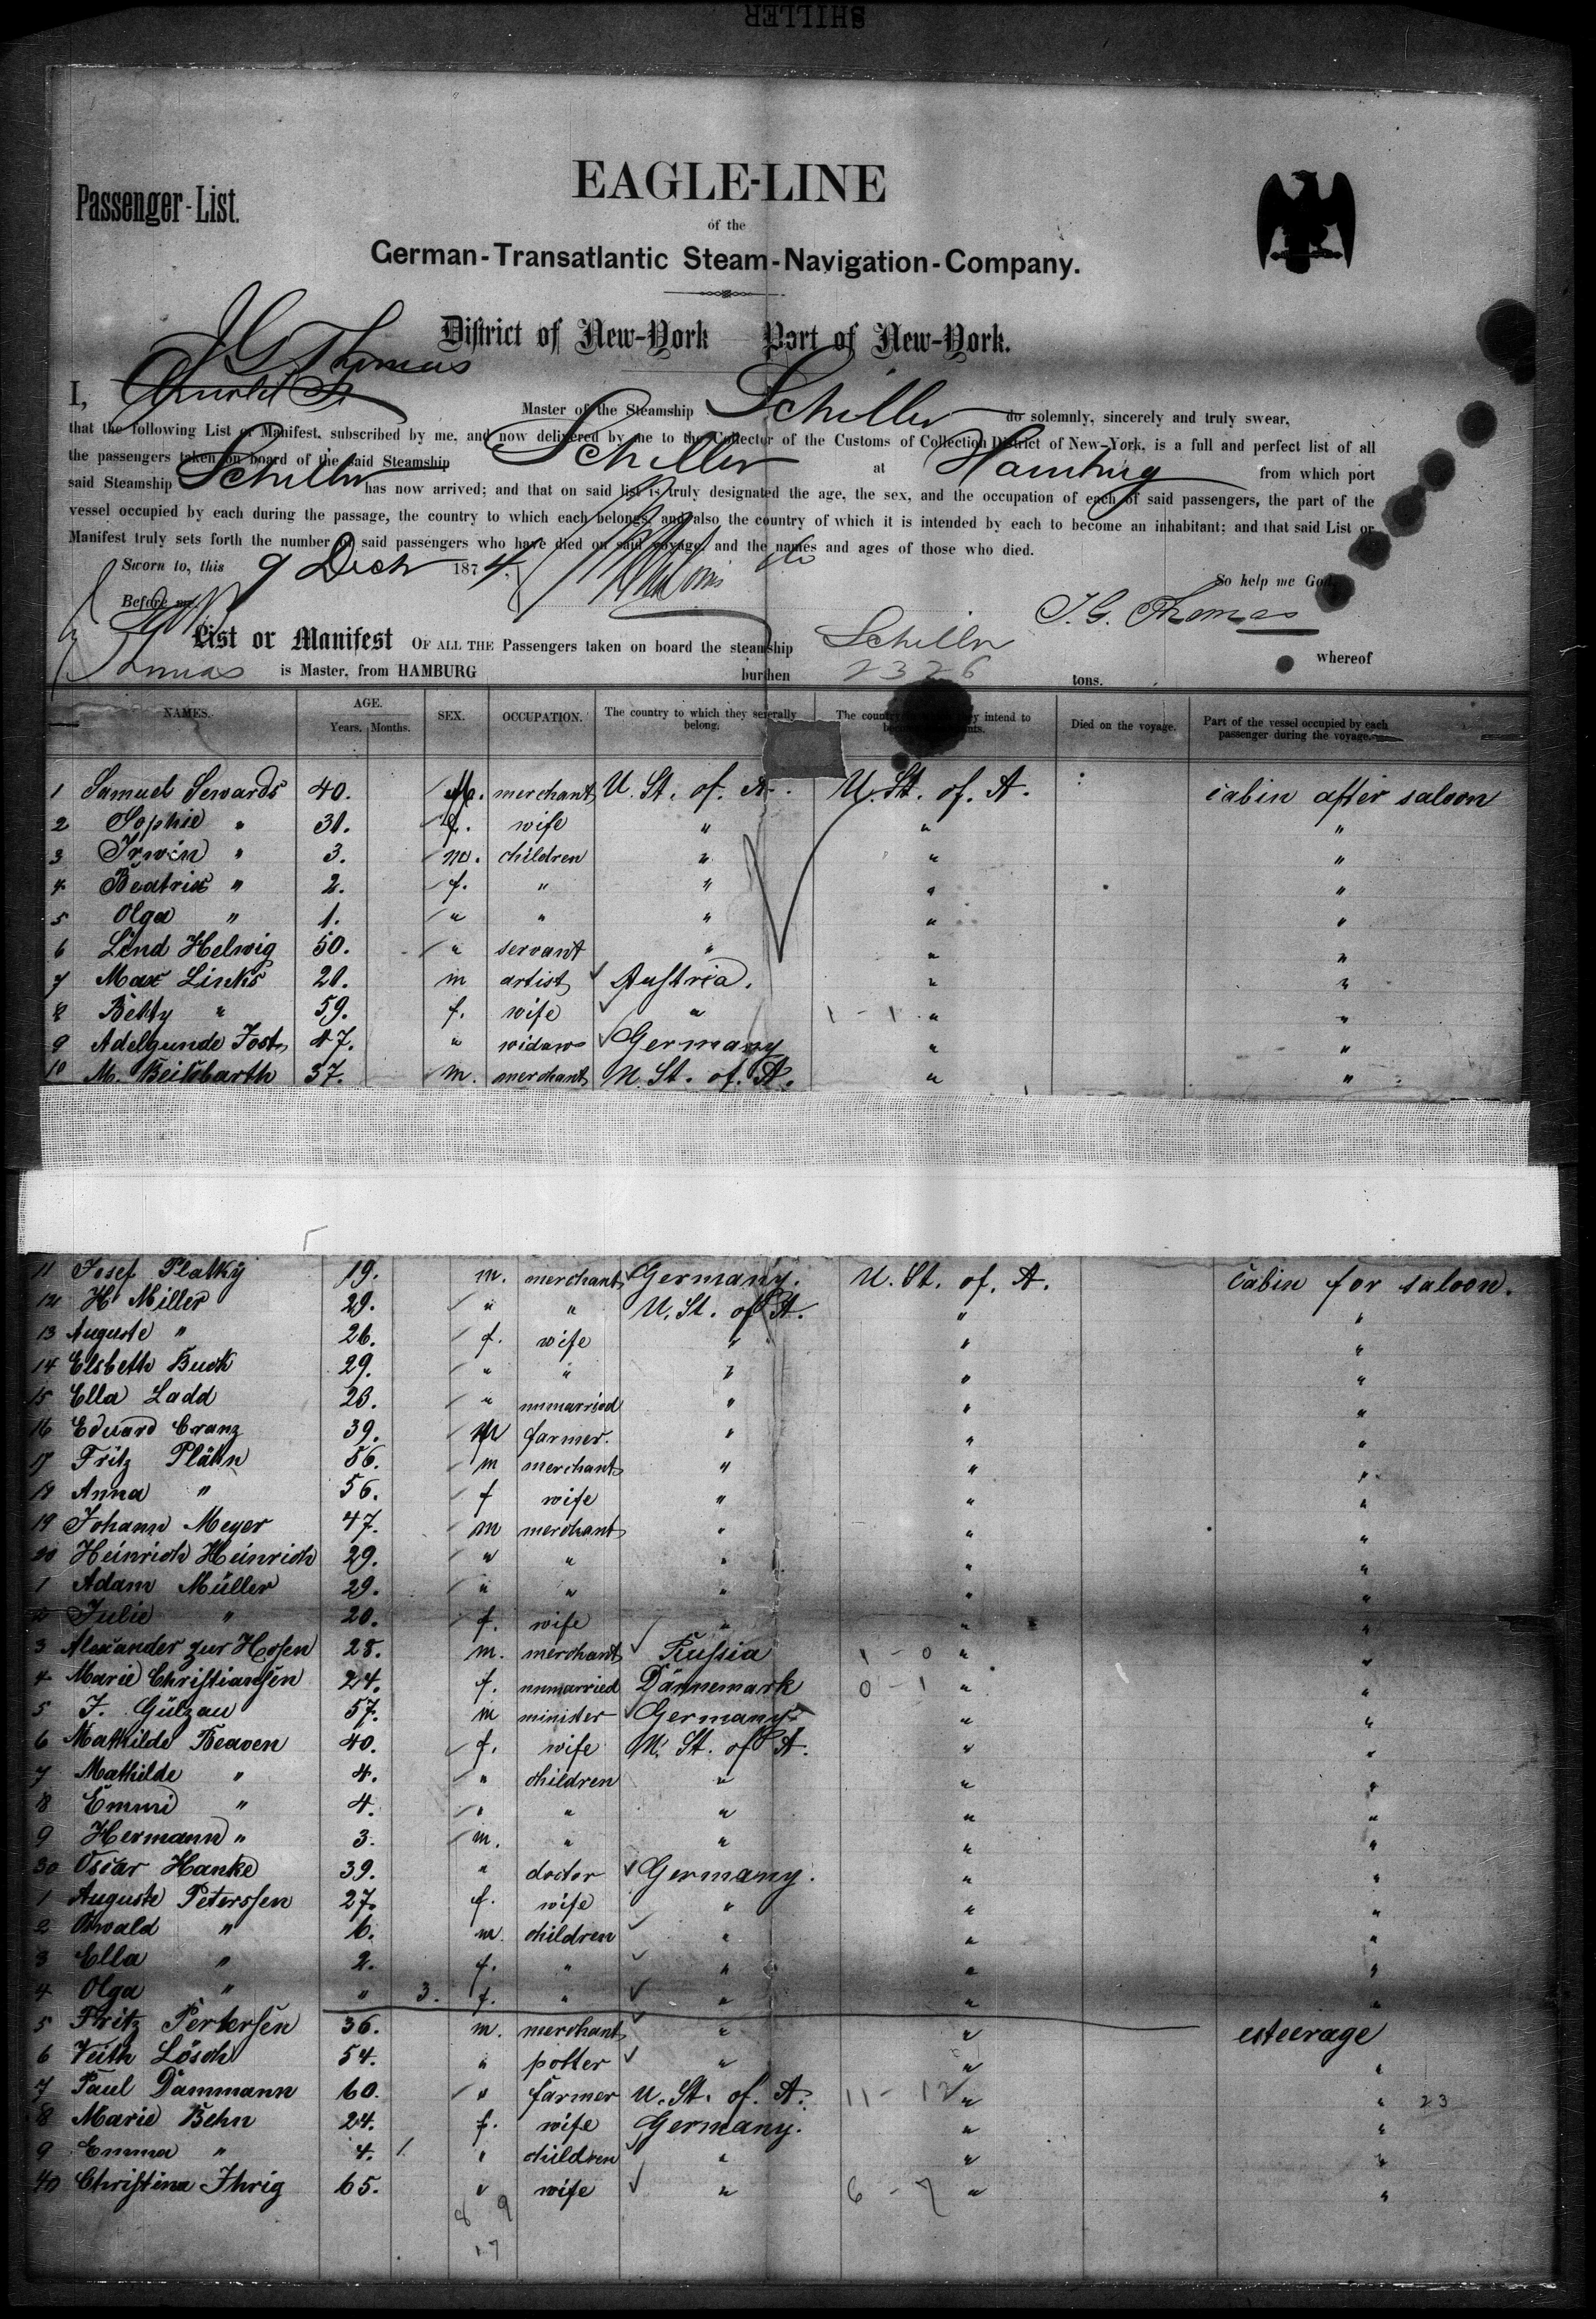 SHILLER
Passenger-List.
EAGLE-LINE
of the
German-Transatlantic Steam-Navigation-Company.
District of New-York Port of New-York.
J G Thomas
I, Master of the Steamship Schiller do solemnly, sincerely and truly swear,
that the following List or Manifest, subscribed by me, and now delivered by me to the Collector of the Customs of Collection District of New-York, is a full and perfect list of all
the passengers taken on board of the said Steamship Schiller at Hamburg from which port
said Steamship Schiller has now arrived; and that on said list is truly designated the age, the sex, and the occupation of each of said passengers, the part of the
vessel occupied by each during the passage, the country to which each belongs, and also the country of which it is intended by each to become an inhabitant; and that said List or
Manifest truly sets forth the number of said passengers who have died on said voyage, and the names and ages of those who died.
Sworn to, this 9 Decbr 1874
So help me God,
Before me,
J. G. Thomas
List or Manifest OF ALL THE Passengers taken on board the steamship Schiller whereof
Thomas is Master, from HAMBURG burthen 2326 tons.
NAMES. AGE. Years. Months. SEX. OCCUPATION. The country to which they severally belong. The country intend to Died on the voyage. Part of the vessel occupied by each passenger during the voyage.
1 Samuel Sewards 40. M. merchant U. St. of. A. U. St. of. A. cabin after saloon
2 Sophie " 31. f. wife " " "
3 Irwin " 3. m. children " " "
4 Beatrix " 2. f. " " " "
5 Olga " 1. " " " " "
6 Lend Helwig 50. " servant " " "
7 Max Links 21. m artist Austria. " "
8 Betty " 59. f. wife " 1 - 1 " "
9 Adelgunde Jost 47. " widow Germany " "
10 M. Beilbarth 37. m. merchant U. St. of. A. " "
11 Josef Platky 19. m. merchant Germany. U. St. of. A. cabin for saloon.
12 H. Miller 29. " " U. St. of A. " "
13 Auguste " 26. f. wife " " "
14 Elsbeth Buck 29. " " " " "
15 Ella Ladd 23. " unmarried " " "
16 Eduard Cranz 39. M farmer. " " "
17 Fritz Plähn 56. m merchant " " "
18 Anna " 56. f wife " " "
19 Johann Meyer 47. m merchant " " "
20 Heinrich Heinrich 29. " " " " "
1 Adam Müller 29. " " " " "
2 Julie " 20. f. wife " " "
3 Alexander zur Hosen 28. m. merchant Russia 1 - 0 " "
4 Marie Christiansen 24. f. unmarried Dännemark 0 - 1 " "
5 J. Gülzau 57. m minister Germany " "
6 Mathilde Beaven 40. f. wife U. St. of A. " "
7 Mathilde " 4. " children " " "
8 Emmi " 4. " " " " "
9 Hermann " 3. m. " " " "
30 Oscar Hanke 39. " doctor Germany. " "
1 Auguste Peterssen 27. f. wife " " "
2 Oswald " 6. m. children " " "
3 Ella " 2. f. " " " "
4 Olga " " 3. f. " " " "
5 Fritz Pertersen 36. m. merchant " " esteerage
6 Veith Lösch 54. " potter " " "
7 Paul Dammann 60. " farmer U. St. of. A. 11 - 12 " " 23
8 Marie Behn 24. f. wife Germany. " "
9 Emma " 4. " children " " "
40 Christina Ihrig 65. " wife " 6 - 7 " "
8 9
17